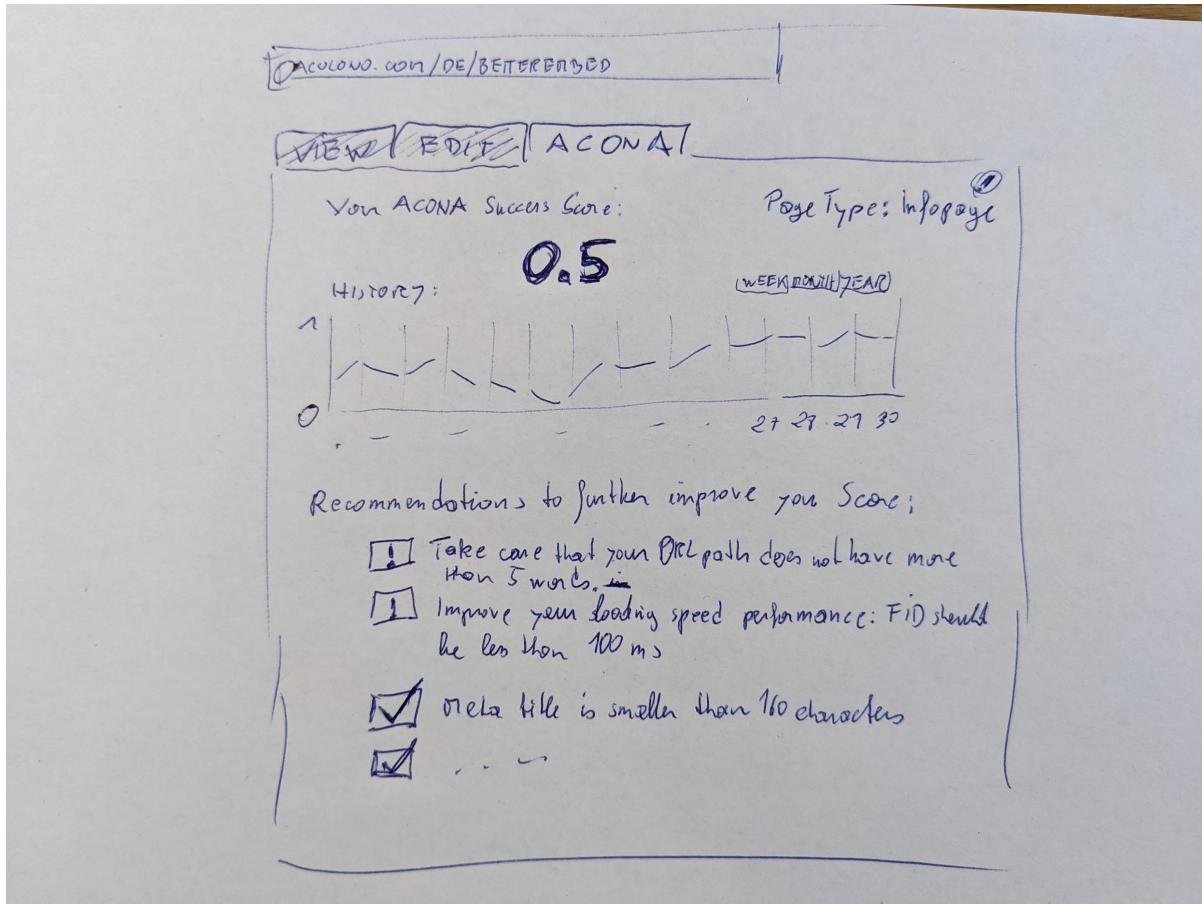 ACOLONO.COM/DE/BETTEREMBED
VIEW EDIT ACONA
Your ACONA Success Score:
Page Type: Infopage
0.5
HISTORY:
WEEK MONTH YEAR
1
0
27 28 29 30
Recommendations to further improve your Score:
! Take care that your URL path does not have more
than 5 words.
! Improve your loading speed performance: FID should
be less than 100 ms
Meta title is smaller than 160 characters
. . -